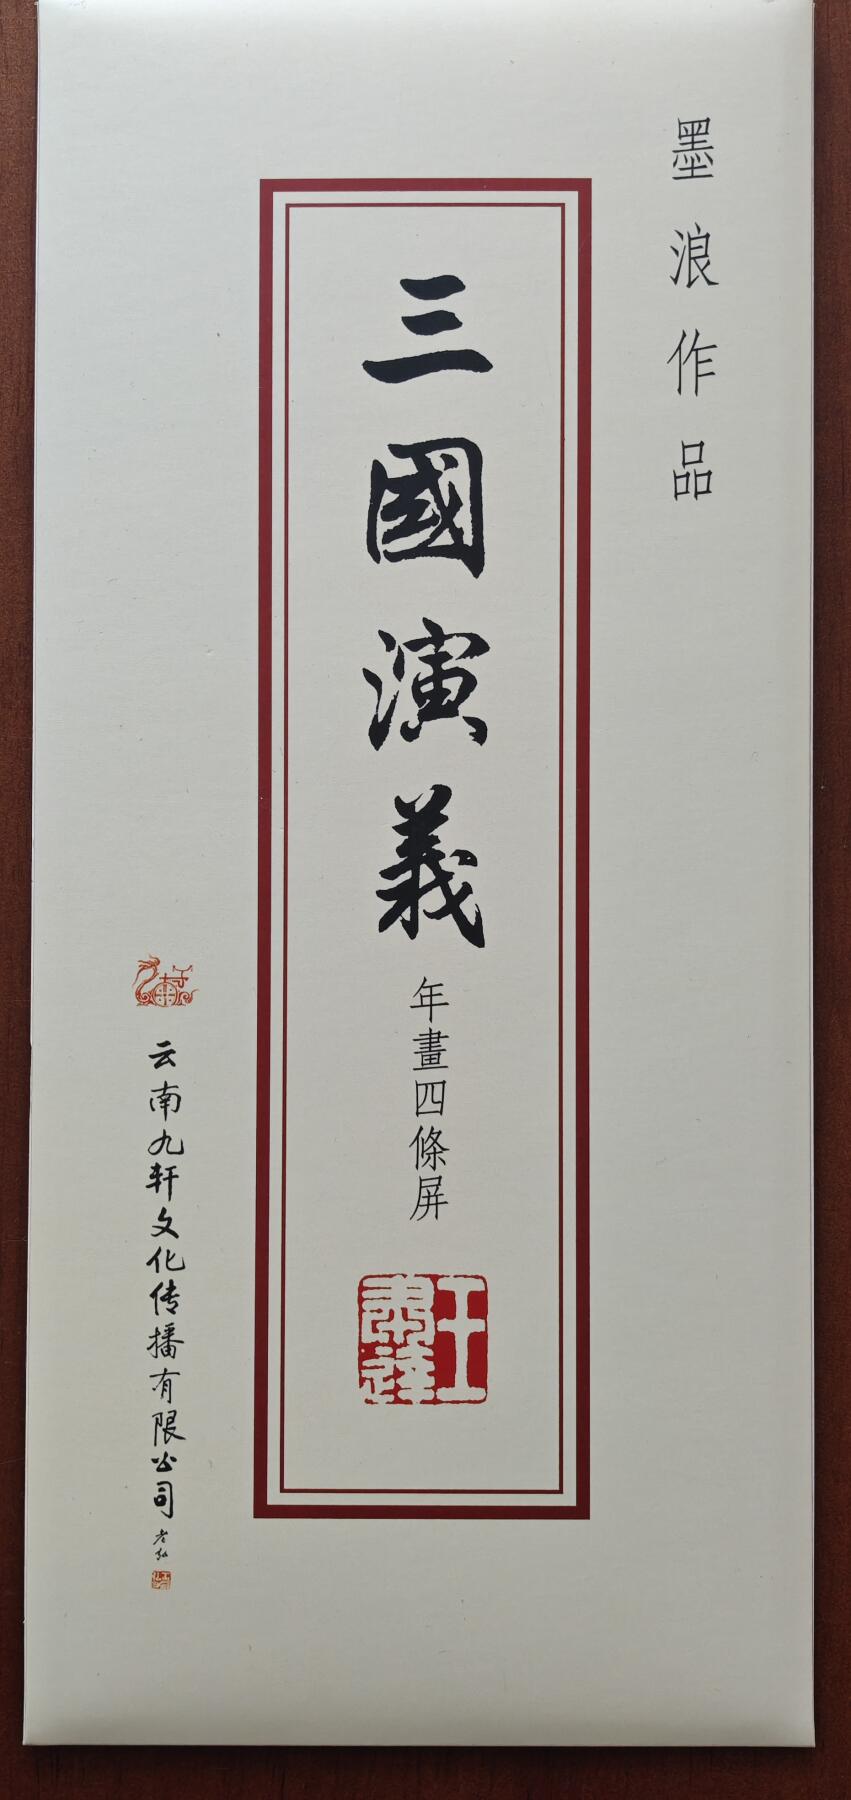 墨浪作品
三國演義
年畫四條屏
云南九轩文化传播有限公司